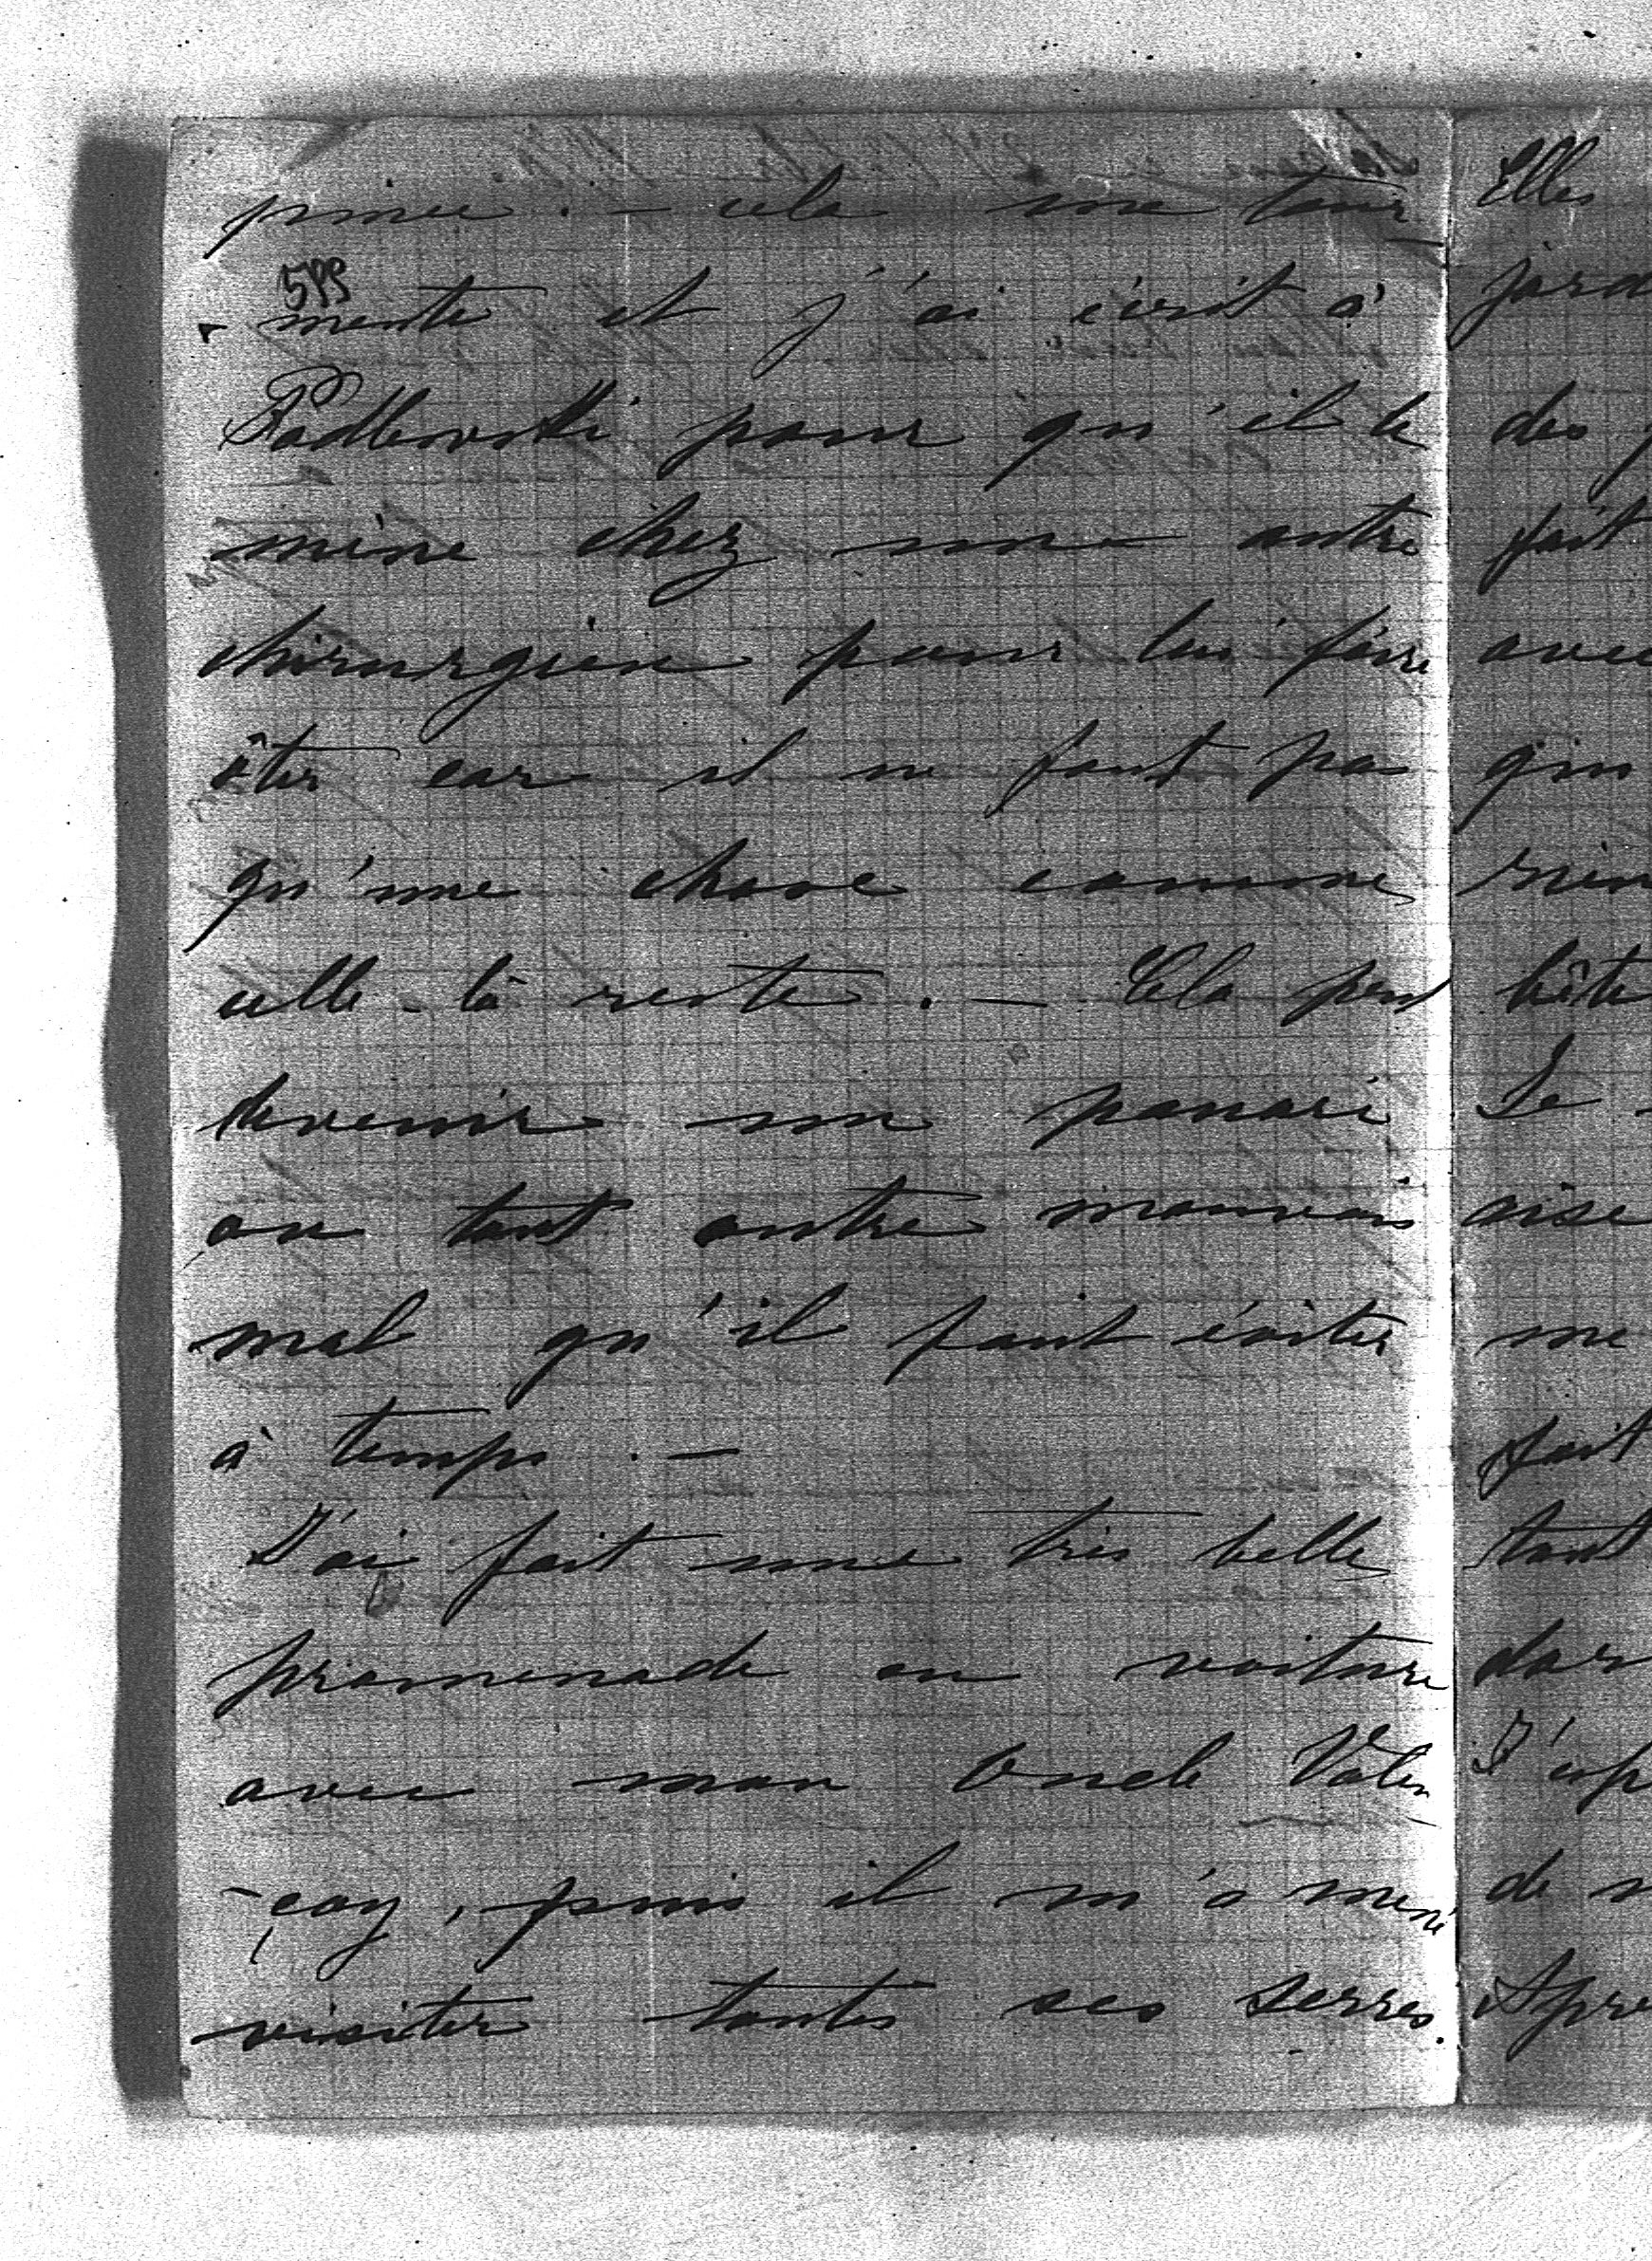 cela me tour-
599
-mente et j'ai écrit à
Podlewski pour qu'il le
mène chez une autre
chirurgien pour lui faire
ôter car il ne faut pas
qu'une chose comme
celle-là reste. — Cela peut
devenir un panari
ou tout autre mauvais
mal qu'il faut éviter
à temps. —
J'ai fait une très belle
promenade en voiture
avec mon Oncle Valen
-çay, puis il m'a mené
visiter toutes ses serres.
Elles
jard
des
fait
avec
qui
rien
bête
Le
aise
me
fait
tout
dan
J'esp
de
Apre